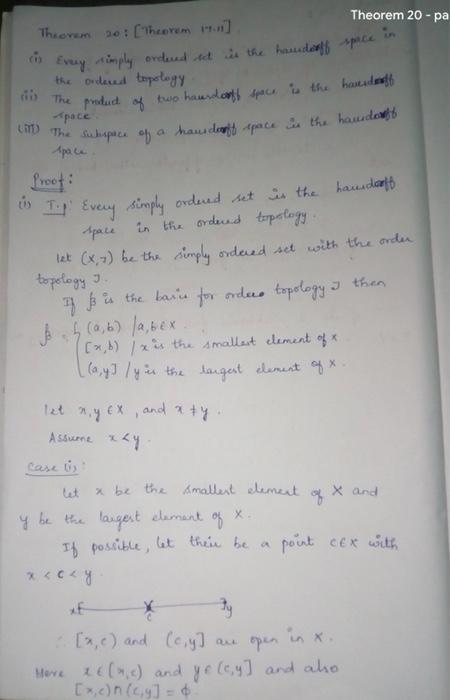 Theorem 20 - pa
Theorem 20: [Theorem 17.11]
(i) Every simply ordered set is the hausdorff space in
the ordered topology.
(ii) The product of two hausdorff space is the hausdorff
space.
(iii) The subspace of a hausdorff space is the hausdorff
space.
Proof:
(i) T.p: Every simply ordered set is the hausdorff
space in the ordered topology.
let (X, J) be the simply ordered set with the order
topology J.
If β is the basis for order topology J then
β = { (a,b) / a,b ∈ X.
[x,b) / x is the smallest element of X.
(a,y] / y is the largest element of X.
let x, y ∈ X, and x ≠ y.
Assume x < y.
Case (i):
Let x be the smallest element of X and
y be the largest element of X.
If possible, let their be a point c ∈ X with
x < c < y.
x c y
∴ [x,c) and (c,y] are open in X.
Here x ∈ [x,c) and y ∈ (c,y] and also
[x,c) ∩ (c,y] = φ.